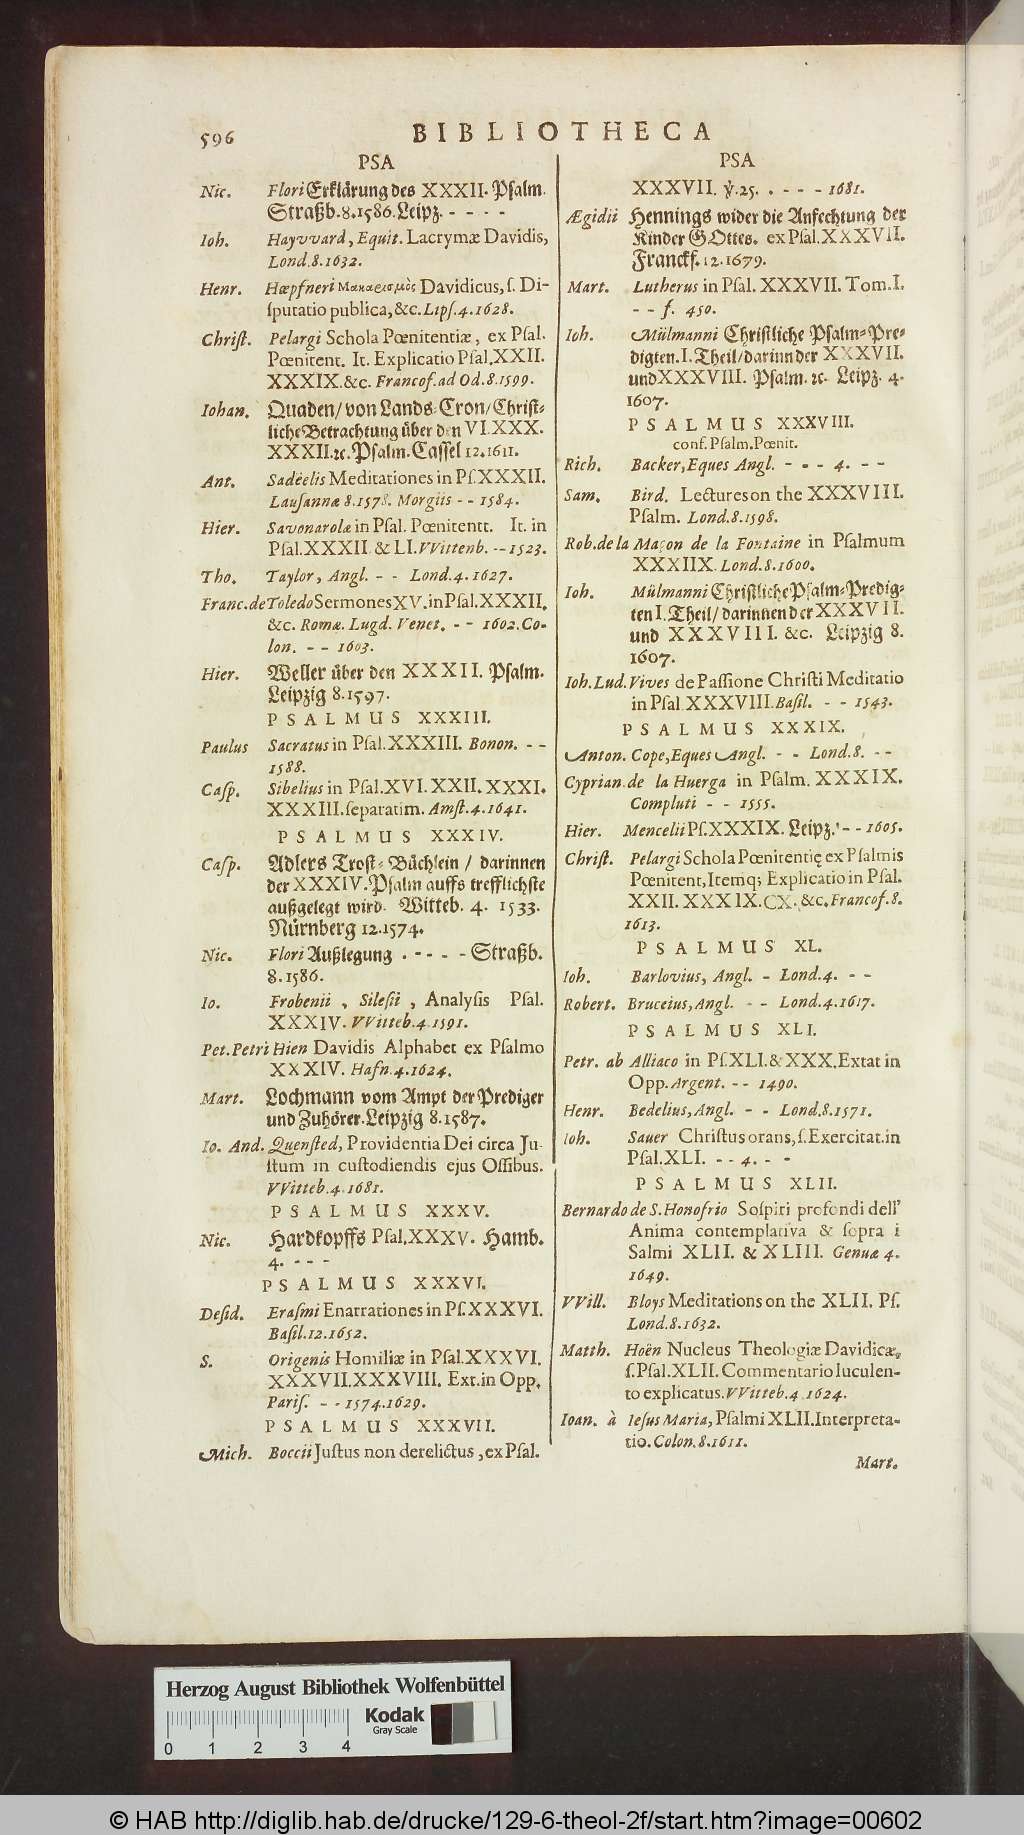 596
BIBLIOTHECA
PSA
Nic. Flori Erklärung des XXXII. Psalm.
Straßb. 8. 1586. Leipz. - - - - -
Ioh. Hayvvard, Equit. Lacrymæ Davidis,
Lond. 8. 1632.
Henr. Hœpfneri Μακαρισμὸς Davidicus, ſ. Di-
ſputatio publica, &c. Lipſ. 4. 1628.
Chriſt. Pelargi Schola Pœnitentiæ, ex Pſal.
Pœnitent. It. Explicatio Pſal. XXII.
XXXIX. &c. Francof. ad Od. 8. 1599.
Iohan. Quaden/ von Lands-Cron/ Chriſt-
liche Betrachtung über den VI. XXX.
XXXII. ꝛc. Pſalm. Caſſel 12. 1611.
Ant. Sadeelis Meditationes in Pſ. XXXII.
Lauſannæ 8. 1578. Morgiis - - 1584.
Hier. Savonarolæ in Pſal. Pœnitentt. It. in
Pſal. XXXII. & LI. VVittenb. - - 1523.
Tho. Taylor, Angl. - - Lond. 4. 1627.
Franc. de Toledo Sermones XV. in Pſal. XXXII.
&c. Romæ. Lugd. Venet. - - 1602. Co-
lon. - - 1603.
Hier. Weller über den XXXII. Pſalm.
Leipzig 8. 1597.
PSALMUS XXXIII.
Paulus Sacratus in Pſal. XXXIII. Bonon. - -
1588.
Caſp. Sibelius in Pſal. XVI. XXII. XXXI.
XXXIII. ſeparatim. Amſt. 4. 1641.
PSALMUS XXXIV.
Caſp. Adlers Troſt-Büchlein / darinnen
der XXXIV. Pſalm auffs trefflichſte
außgelegt wird. Witteb. 4. 1533.
Nürnberg 12. 1574.
Nic. Flori Außlegung . - - - - Straßb.
8. 1586.
Io. Frobenii, Sileſii, Analyſis Pſal.
XXXIV. VVitteb. 4. 1591.
Pet. Petri Hien Davidis Alphabet ex Pſalmo
XXXIV. Hafn. 4. 1624.
Mart. Lochmann vom Ampt der Prediger
und Zuhörer. Leipzig 8. 1587.
Io. And. Quenſted, Providentia Dei circa Ju-
ſtum in cuſtodiendis ejus Oſſibus.
VVitteb. 4. 1681.
PSALMUS XXXV.
Nic. Hardkopffs Pſal. XXXV. Hamb.
4. - - -
PSALMUS XXXVI.
Deſid. Eraſmi Enarrationes in Pſ. XXXVI.
Baſil. 12. 1652.
S. Origenis Homiliæ in Pſal. XXXVI.
XXXVII. XXXVIII. Ext. in Opp.
Pariſ. - - 1574. 1629.
PSALMUS XXXVII.
Mich. Boccii Juſtus non derelictus, ex Pſal.
PSA
XXXVII. ℣. 25. . - - - 1681.
Ægidii Hennings wider die Anfechtung der
Kinder GOttes. ex Pſal. XXXVII.
Franckf. 12. 1679.
Mart. Lutherus in Pſal. XXXVII. Tom. I.
- - f. 450.
Ioh. Mülmanni Chriſtliche Pſalm-Pre-
digten. I. Theil/ darinn der XXXVII.
und XXXVIII. Pſalm. ꝛc. Leipz. 4.
1607.
PSALMUS XXXVIII.
conf. Pſalm. Pœnit.
Rich. Backer, Eques Angl. - - - 4. - -
Sam. Bird. Lectures on the XXXVIII.
Pſalm. Lond. 8. 1598.
Rob. de la Maçon de la Fontaine in Pſalmum
XXXIIX. Lond. 8. 1600.
Ioh. Mülmanni Chriſtliche Pſalm-Predig-
ten I. Theil/ darinnen der XXXVII.
und XXXVIII. &c. Leipzig 8.
1607.
Ioh. Lud. Vives de Paſſione Chriſti Meditatio
in Pſal. XXXVIII. Baſil. - - 1543.
PSALMUS XXXIX.
Anton. Cope, Eques Angl. - - Lond. 8. - -
Cyprian. de la Huerga in Pſalm. XXXIX.
Compluti - - 1555.
Hier. Mencelii Pſ. XXXIX. Leipz. - - 1605.
Chriſt. Pelargi Schola Pœnitentię ex Pſalmis
Pœnitent, Itemq; Explicatio in Pſal.
XXII. XXXIX. CX. &c. Francof. 8.
1613.
PSALMUS XL.
Ioh. Barlovius, Angl. - Lond. 4. - -
Robert. Bruceius, Angl. - - Lond. 4. 1617.
PSALMUS XLI.
Petr. ab Alliaco in Pſ. XLI. & XXX. Extat in
Opp. Argent. - - 1490.
Henr. Bedelius, Angl. - - Lond. 8. 1571.
Ioh. Sauer Chriſtus orans, ſ. Exercitat. in
Pſal. XLI. - - 4. - -
PSALMUS XLII.
Bernardo de S. Honofrio Soſpiri profondi dell'
Anima contemplativa & ſopra i
Salmi XLII. & XLIII. Genuæ 4.
1649.
VVill. Bloys Meditations on the XLII. Pſ.
Lond. 8. 1632.
Matth. Hoën Nucleus Theologiæ Davidicæ,
ſ. Pſal. XLII. Commentario luculen-
to explicatus. VVitteb. 4. 1624.
Ioan. à Ieſus Maria, Pſalmi XLII. Interpreta-
tio. Colon. 8. 1611.
Mart.
Herzog August Bibliothek Wolfenbüttel
Kodak
Gray Scale
0 1 2 3 4
© HAB http://diglib.hab.de/drucke/129-6-theol-2f/start.htm?image=00602